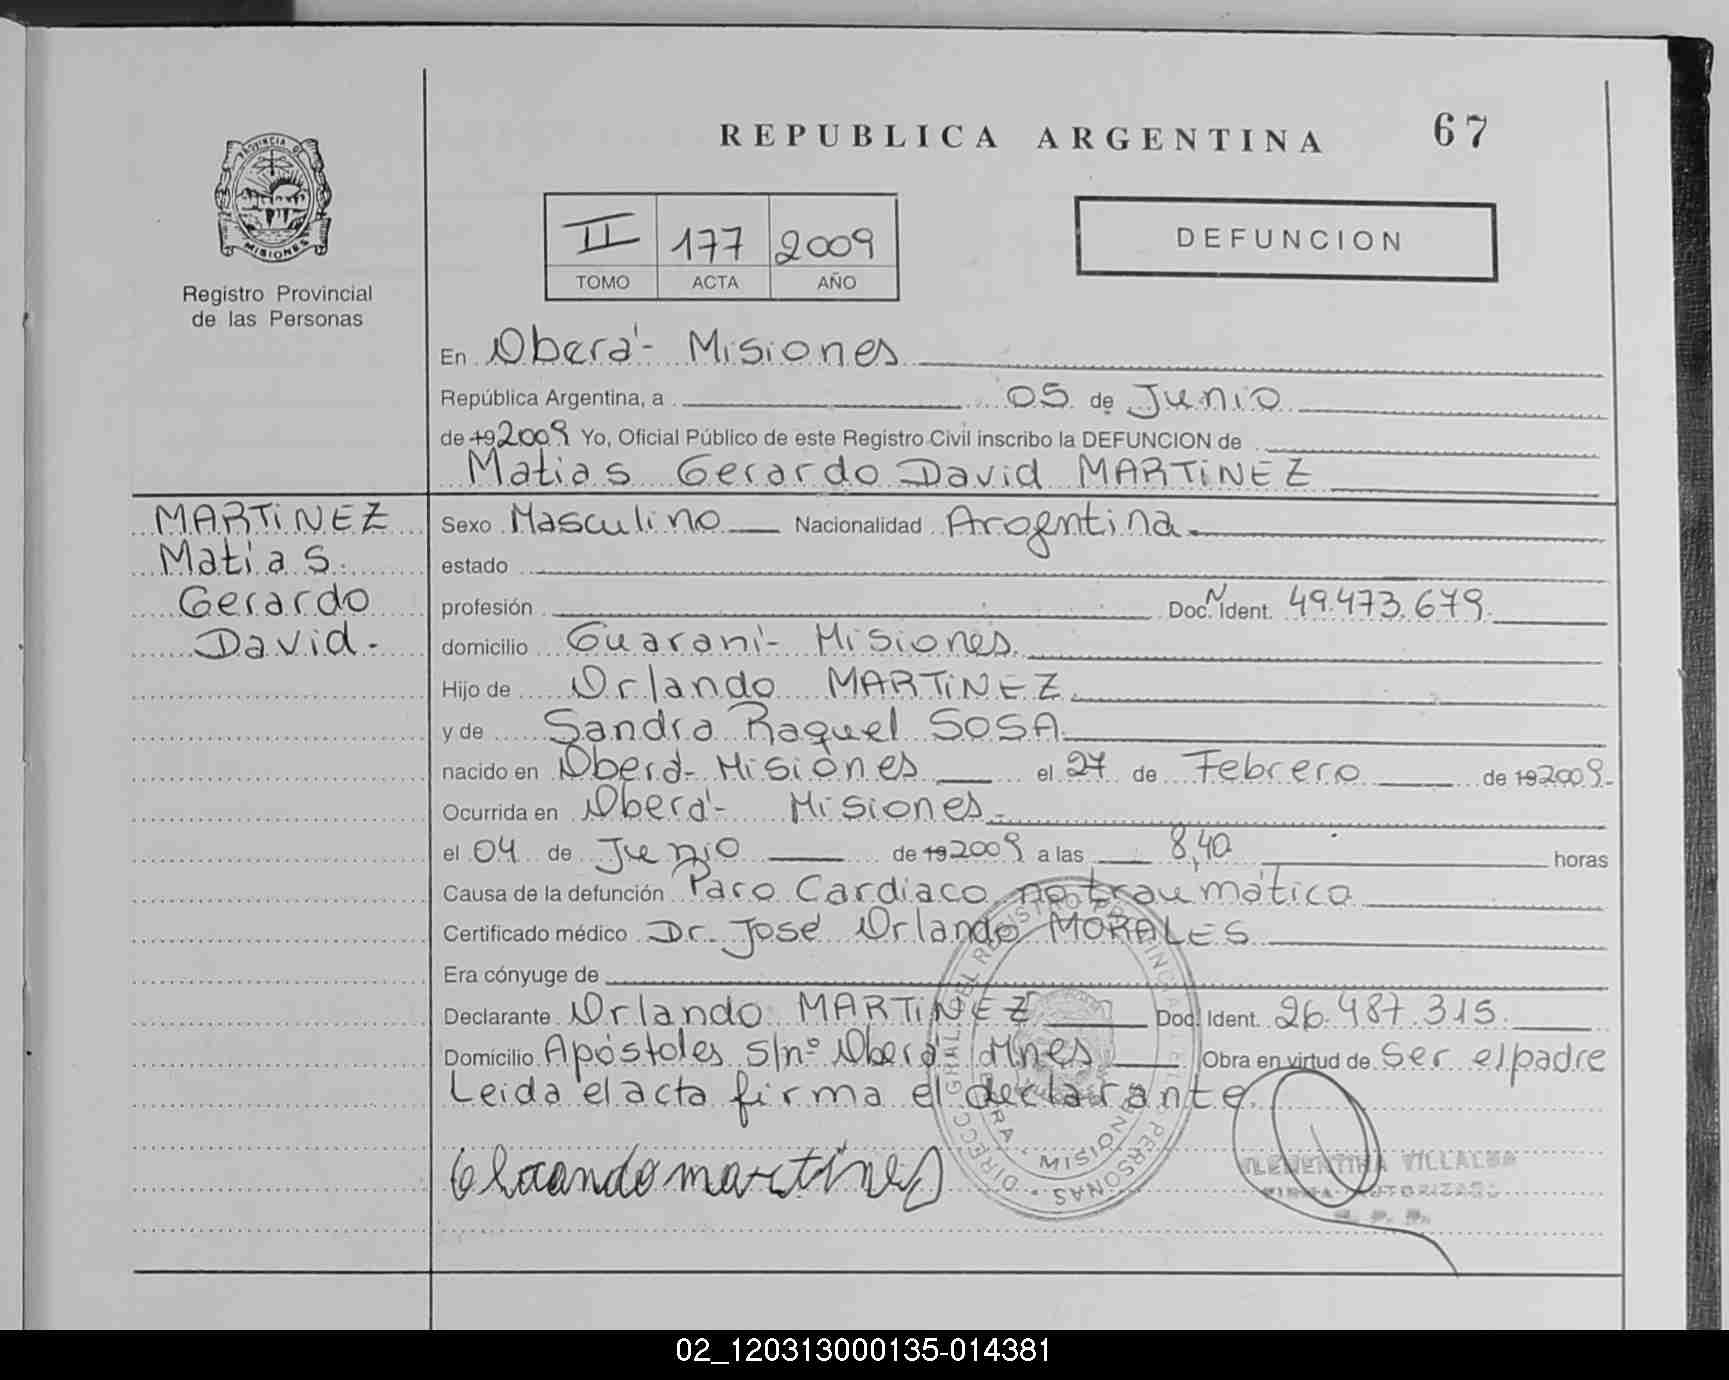 REPUBLICA ARGENTINA 67
PROVINCIA DE
MISIONES
Registro Provincial
de las Personas
II 177 2009
TOMO ACTA AÑO
DEFUNCION
En Oberá - Misiones
República Argentina, a 05 de Junio
de 19 2009 Yo, Oficial Público de este Registro Civil inscribo la DEFUNCION de
Matias Gerardo David MARTINEZ
MARTINEZ
Matias
Gerardo
David.-
Sexo Masculino Nacionalidad Argentina.
estado
profesión Doc. N Ident. 49.473.679.
domicilio Guaraní - Misiones.
Hijo de Orlando MARTINEZ.
y de Sandra Raquel SOSA.
nacido en Oberá - Misiones el 27 de Febrero de 19 2009.-
Ocurrida en Oberá - Misiones.-
el 04 de Junio de 19 2009 a las 8,40 horas
Causa de la defunción Paro Cardiaco no traumático
Certificado médico Dr. José Orlando MORALES
Era cónyuge de
Declarante Orlando MARTINEZ Doc. Ident. 26.487.315.
Domicilio Apóstoles s/nº Oberá Mnes Obra en virtud de Ser el padre
Leida el acta firma el declarante.
DIRECC. GRAL. DEL REGISTRO PROVINCIAL PERSONAS
MISIONES
martines
CLEMENTINA VILLALBA
FIRMA AUTORIZADA
R. P. P.
02_120313000135-014381